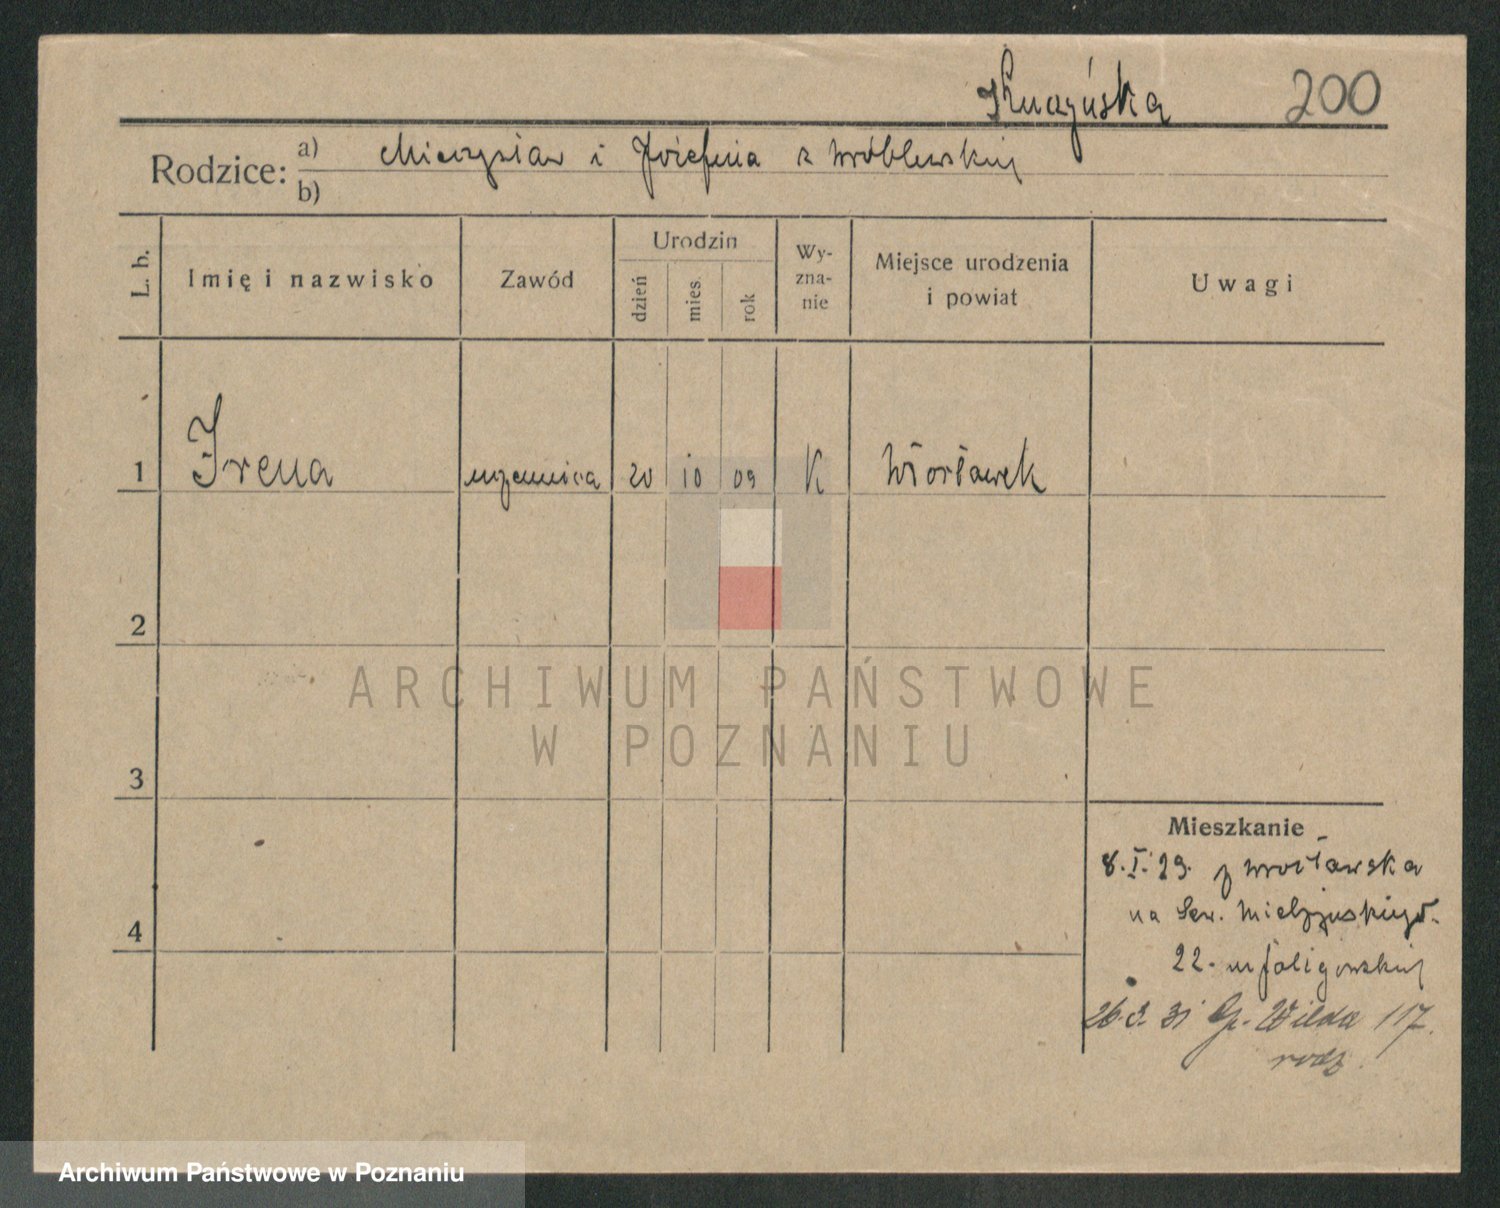 Kuczyńska 200
Rodzice: a) Mieczysław i Józefina z Wróblewskich
b)
L. b. Imię i nazwisko Zawód Urodzin dzień mies. rok Wy-zna-nie Miejsce urodzenia i powiat Uwagi
1 Irena uczennica 20 10 09 K Włocławek
2
3
4
Mieszkanie
8.I.29. z Wrocławska
na Sew. Mielżyńskiego
22
26. 3. 31 G. Wilda 117.
rodz.
ARCHIWUM PAŃSTWOWE
W POZNANIU
Archiwum Państwowe w Poznaniu